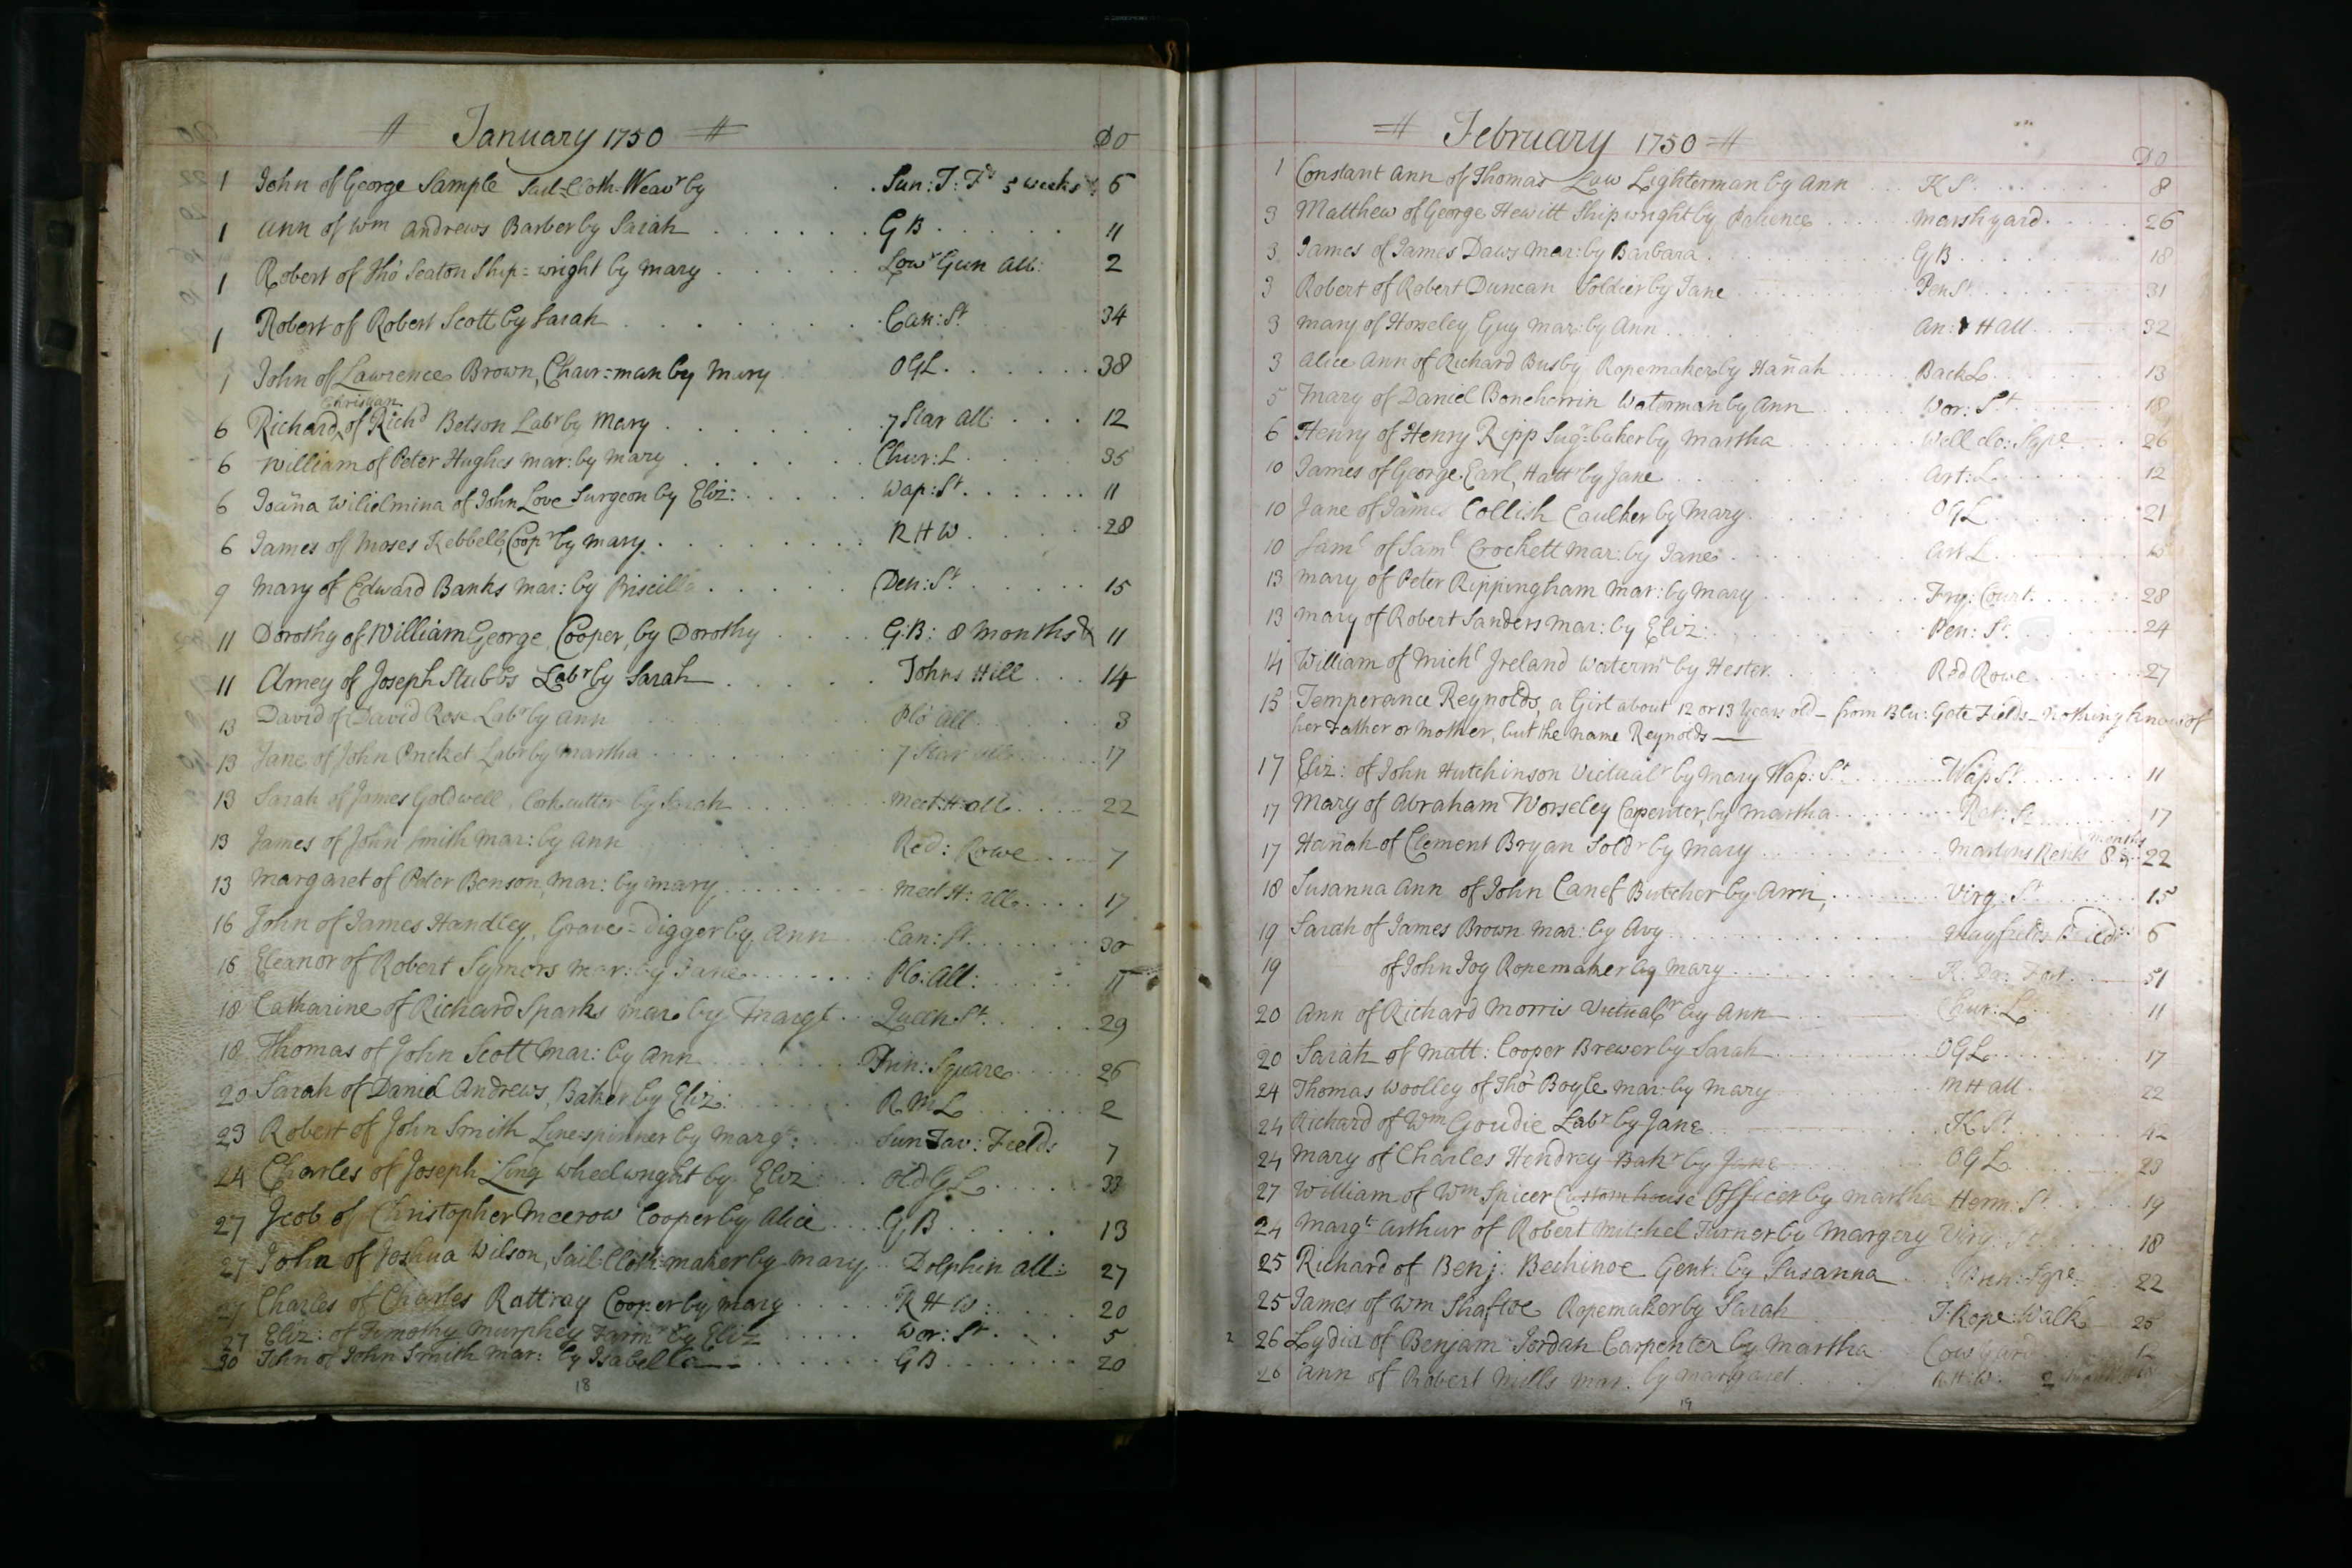 January 1750
Do
1 John of George Sample Sail=Cloth-Weavr by Sun: T: Fds 5 weeks 6
1 Ann of Wm Andrews Barber by Sarah G B 11
1 Robert of Tho Seaton Ship=wright by Mary Lowr Gun All: 2
1 Robert of Robert Scott by Sarah Can: St 34
1 John of Lawrence Brown, Chair=man by Mary OGL 38
Christian
6 Richard ^ of Richd Betson Labr by Mary 7 Star All: 12
6 William of Peter Hughes Mar: by Mary Chur: L 35
6 Joana Wilielmina of John Love Surgeon by Eliz: Wap: St 11
6 James of Moses Kebbell, Coopr by Mary R H W 28
9 Mary of Edward Banks Mar: by Priscilla Pen: St 15
11 Dorothy of William George Cooper, by Dorothy G.B: 8 months & 11
11 Amey of Joseph Stubbs Labr by Sarah Johns Hill 14
13 David of David Rose Labr by Ann Plo All 3
13 Jane of John Pricket Labr by Martha 7 Star All 17
13 Sarah of James Goldwell, Cork cutter by Sarah Meet: H: all 22
13 James of John Smith Mar: by Ann Red: Rowe 7
13 Margaret of Peter Benson, Mar: by Mary Meet H: all 17
16 John of James Handley, Grave=digger by Ann Can: St 30
16 Eleanor of Robert Symers Mar: by Jane Plo: All: 11
18 Catharine of Richard Sparks Mar: by Margt Queen St 29
18 Thomas of John Scott Mar: by Ann Prin: Square 26
20 Sarah of Daniel Andrews, Baker by Eliz: R M L 2
23 Robert of John Smith Line-spinner by Margt: Sun Tav: Fields 7
24 Charles of Joseph Ling Wheelwright by Eliz Old G L 33
27 Jcob of Christopher Meerow Cooper by Alice G B 13
27 John of Joshua Wilson, Sail=Cloth=maker by Mary Dolphin All: 27
27 Charles of Charles Rattray Cooper by Mary R H W: 20
27 Eliz: of Timothy Murphey Farmr by Eliz Wor: St 5
30 John of John Smith Mar: by Isabella G B 20
18
February 1750
Do
1 Constant Ann of Thomas Law Lighterman by Ann K St 8
3 Matthew of George Hewitt Shipwright by Patience Marsh yard 26
3 James of James Daws Mar: by Barbara G B 18
3 Robert of Robert Duncan Soldier by Jane Pen St 31
3 Mary of Horseley Guy Mar: by Ann An: H All 32
3 Alice Ann of Richard Busby Ropemaker by Hanah Back L 13
5 Mary of Daniel Boneherrin Waterman by Ann Wor: St 18
6 Henry of Henry Ripp Sugr=baker by Martha Well clo: Sqre 26
10 James of George Earl, Hattr by Jane Art: L 12
10 Jane of James Collish Caulker by Mary OGL 21
10 Saml of Saml Crockett Mar: by Jane Art L 15
13 Mary of Peter Rippingham Mar: by Mary Fry: Court 28
13 Mary of Robert Sanders Mar: by Eliz: Pen: St 24
14 William of Michl Ireland Waterm by Hester Red Rowe 27
15 Temperance Reynolds, a Girl about 12 or 13 Years old – from Blu: Gate Fields – Nothing know of
her Father or Mother, but the name Reynolds —
17 Eliz: of John Hutchinson Victualr by Mary Wap: St Wap St 11
17 Mary of Abraham Worseley Carpenter, by Martha Rat: St 17
months
17 Hanah of Clement Bryan Soldr by Mary Martins Rents 8 & 22
18 Susanna Ann of John Canes Butcher by Ann, Virg St 15
19 Sarah of James Brown Mar: by Avy Mayfields 6
19 of John Joy Ropemaker by Mary 51
20 Ann of Richard Morris Victualr by Ann Chur: L 11
20 Sarah of Matt: Cooper Brewer by Sarah OGL 17
24 Thomas Woolley of Tho Boyle Mar: by Mary M H all 22
24 Richard of Wm Goudie Labr by Jane K St 42
24 Mary of Charles Hendrey Bakr by Jane O G L 23
27 William of Wm Spicer Custom house Officer by Martha Herm: St 19
24 Margt Arthur of Robert Mitchel Turner by Margery Virg: St 18
25 Richard of Benj: Bechinoe Gent: by Susanna Prin: Sqre 22
25 James of Wm Shaftoe Ropemaker by Sarah Rope Walk 25
2 26 Lydia of Benjam: Jordan Carpenter by Martha Cow yard 12
26 Ann of Robert Mills Mar. by Margaret R: H: W: 2
19